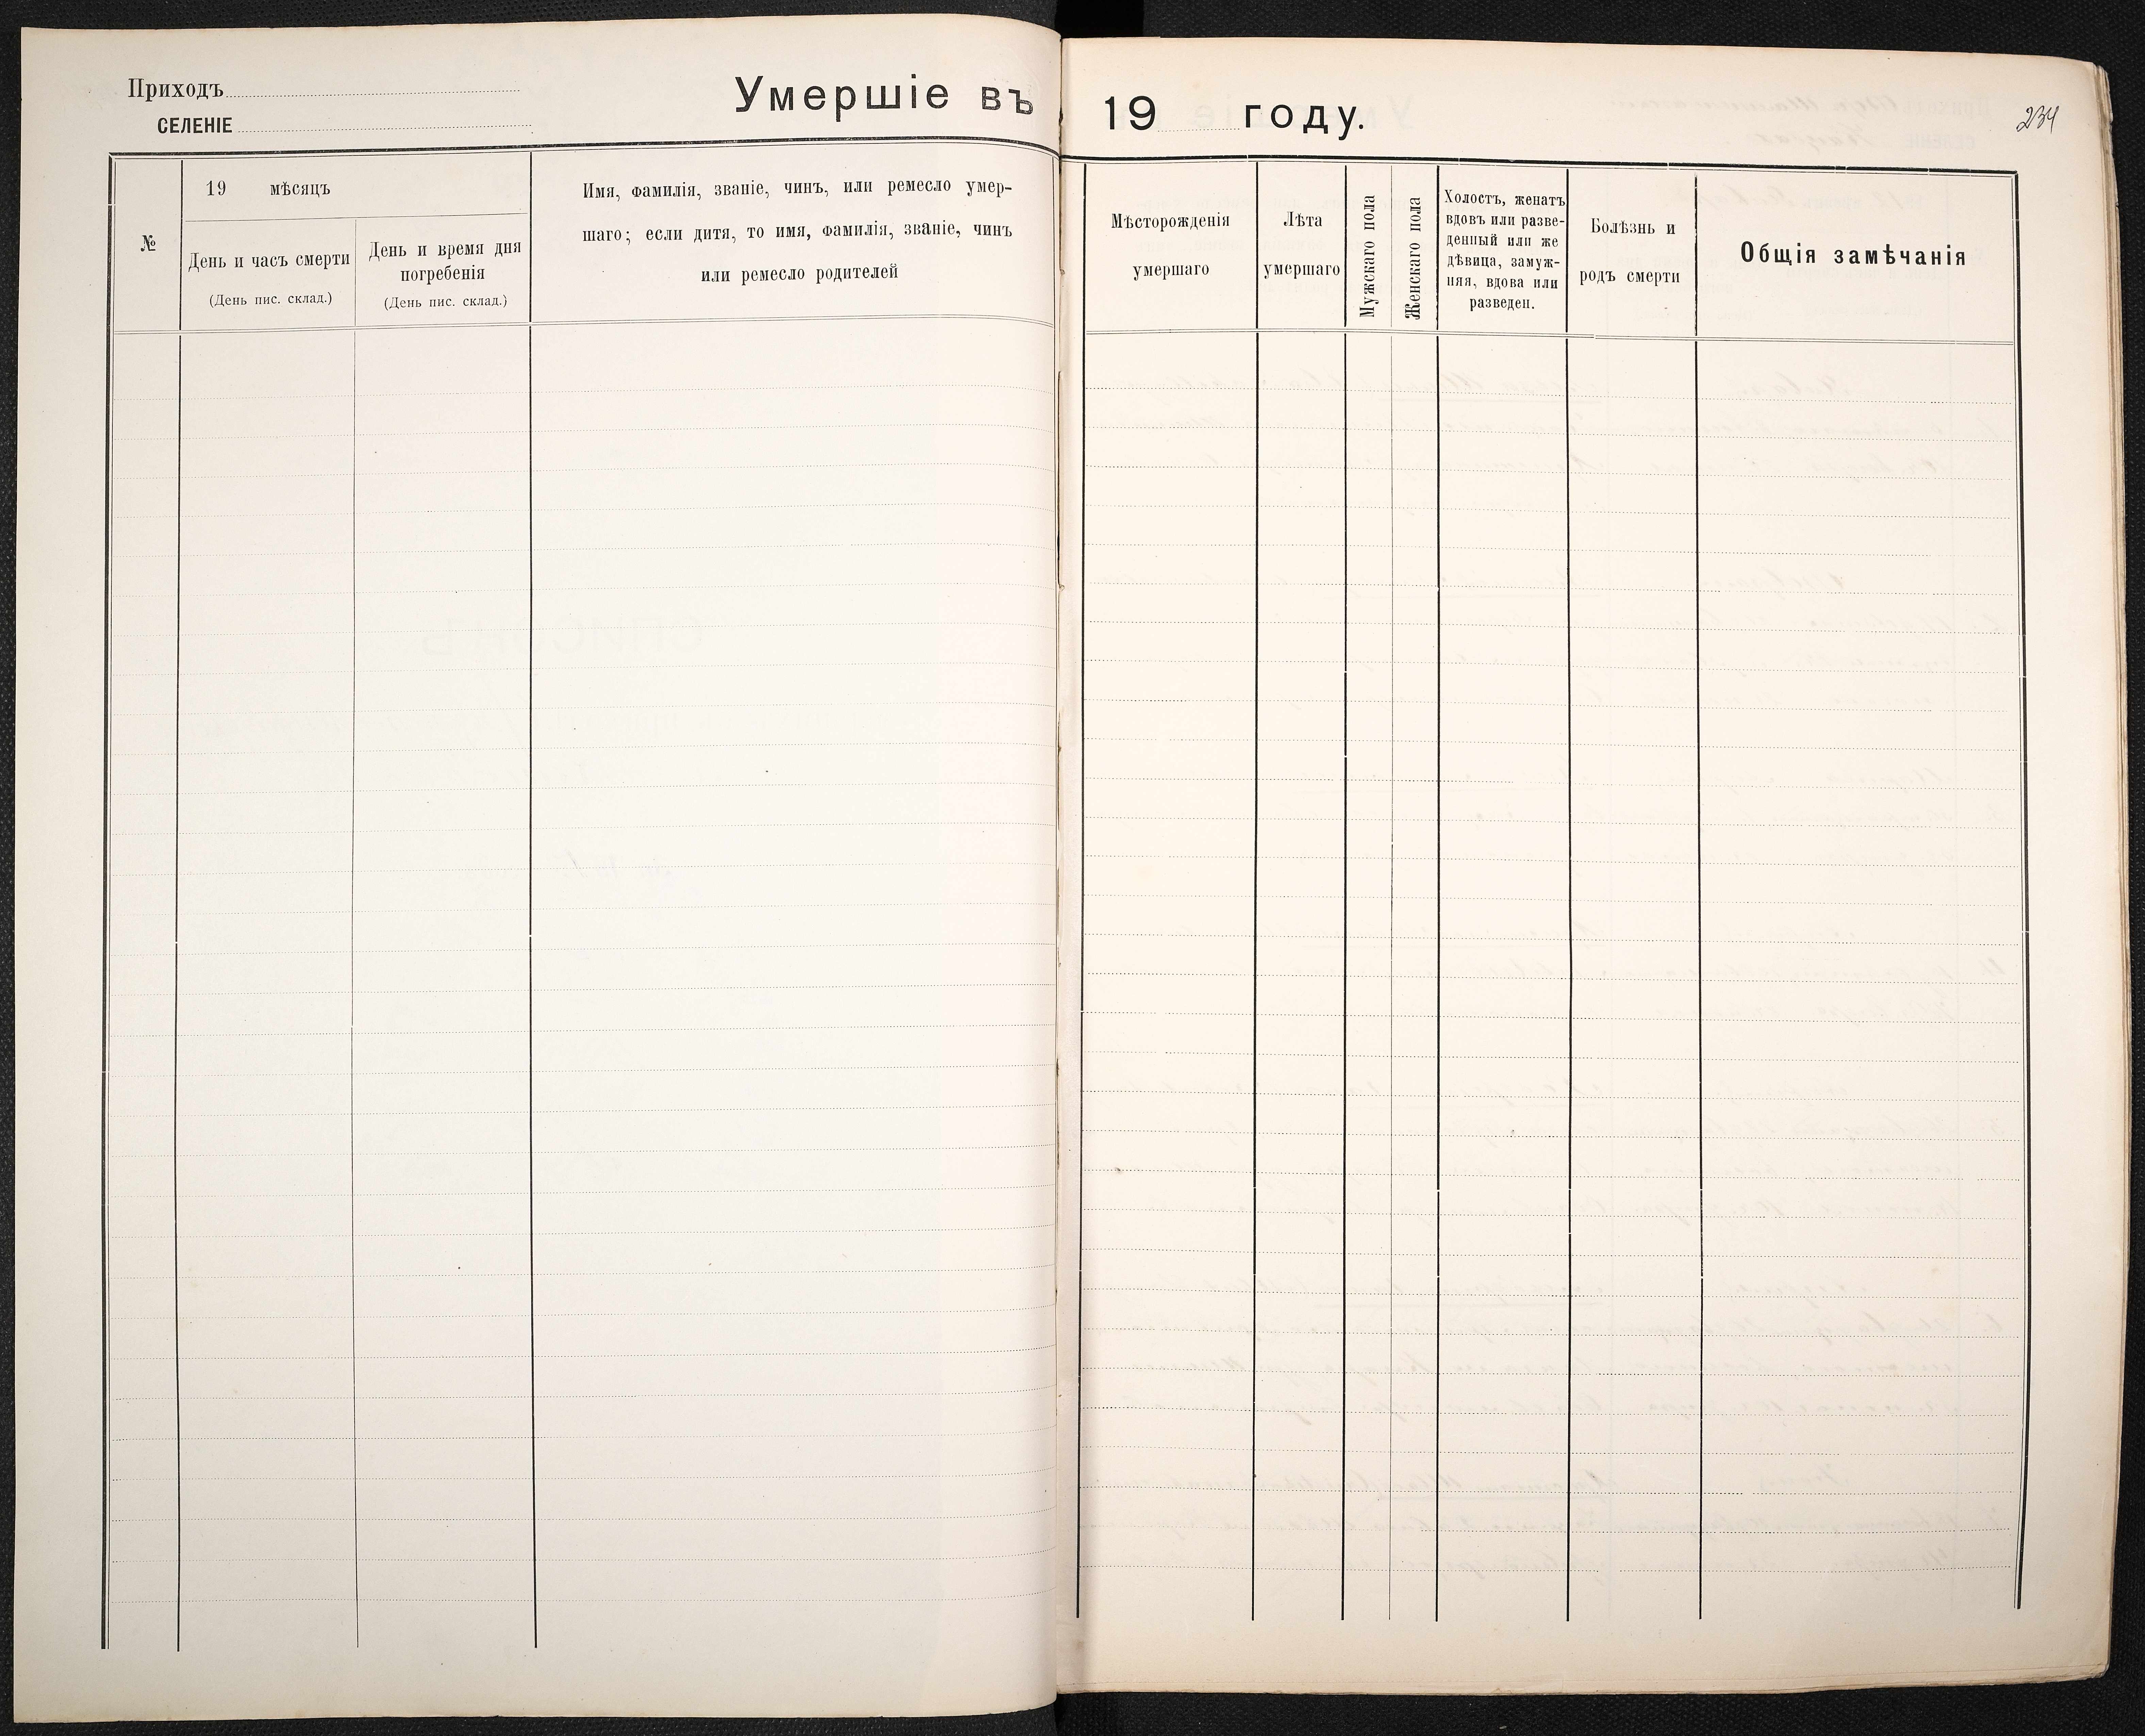 Приходъ
СЕЛЕНІЕ
Умершіе въ 19 году.
234
№
19 мѣсяцъ
День и часъ смерти
(День пис. склад.)
День и время дня
погребенія
(День пис. склад.)
Имя, фамилія, званіе, чинъ, или ремесло умер-
шаго; если дитя, то имя, фамилія, званіе, чинъ
или ремесло родителей
Мѣсторожденія
умершаго
Лѣта
умершаго
Мужскаго пола
Женскаго пола
Холостъ, женатъ
вдовъ или разве-
денный или же
дѣвица, замуж-
няя, вдова или
разведен.
Болѣзнь и
родъ смерти
Общія замѣчанія